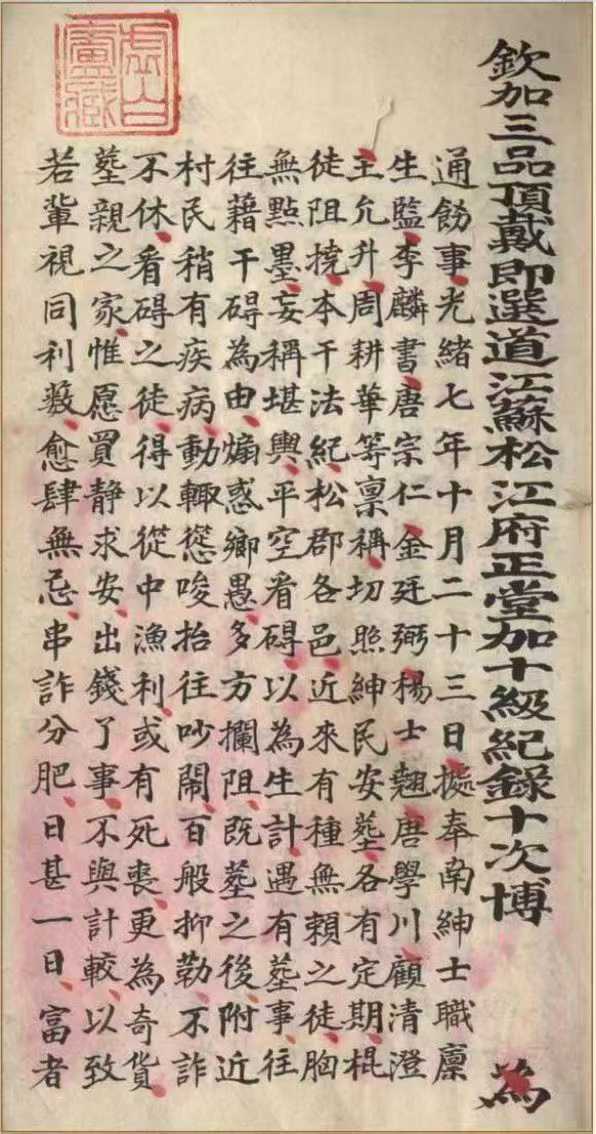 欽加三品頂戴即選道江蘇松江府正堂加十級紀錄十次博 為
通飭事光緒七年十月二十三日據奉南紳士職廩
生監李麟書唐宗仁金廷弼楊士翹唐學川顧清澄
王允升周耕華等稟稱切照紳民安塟各有定期棍
徒阻撓本干法紀松郡各邑近來有種無賴之徒胸
無點墨妄稱堪輿平空看碍以為生計遇有塟事往
往藉干碍為由煽惑鄉愚多方攔阻既塟之後附近
村民稍有疾病動輒慫唆抬往吵鬧百般抑勒不詐
不休看碍之徒得以從中漁利或有死喪更為奇貨
塟親之家惟愿買静求安出錢了事不與計較以致
若輩視同利藪愈肆無忌串詐分肥日甚一日富者
虛白廬藏